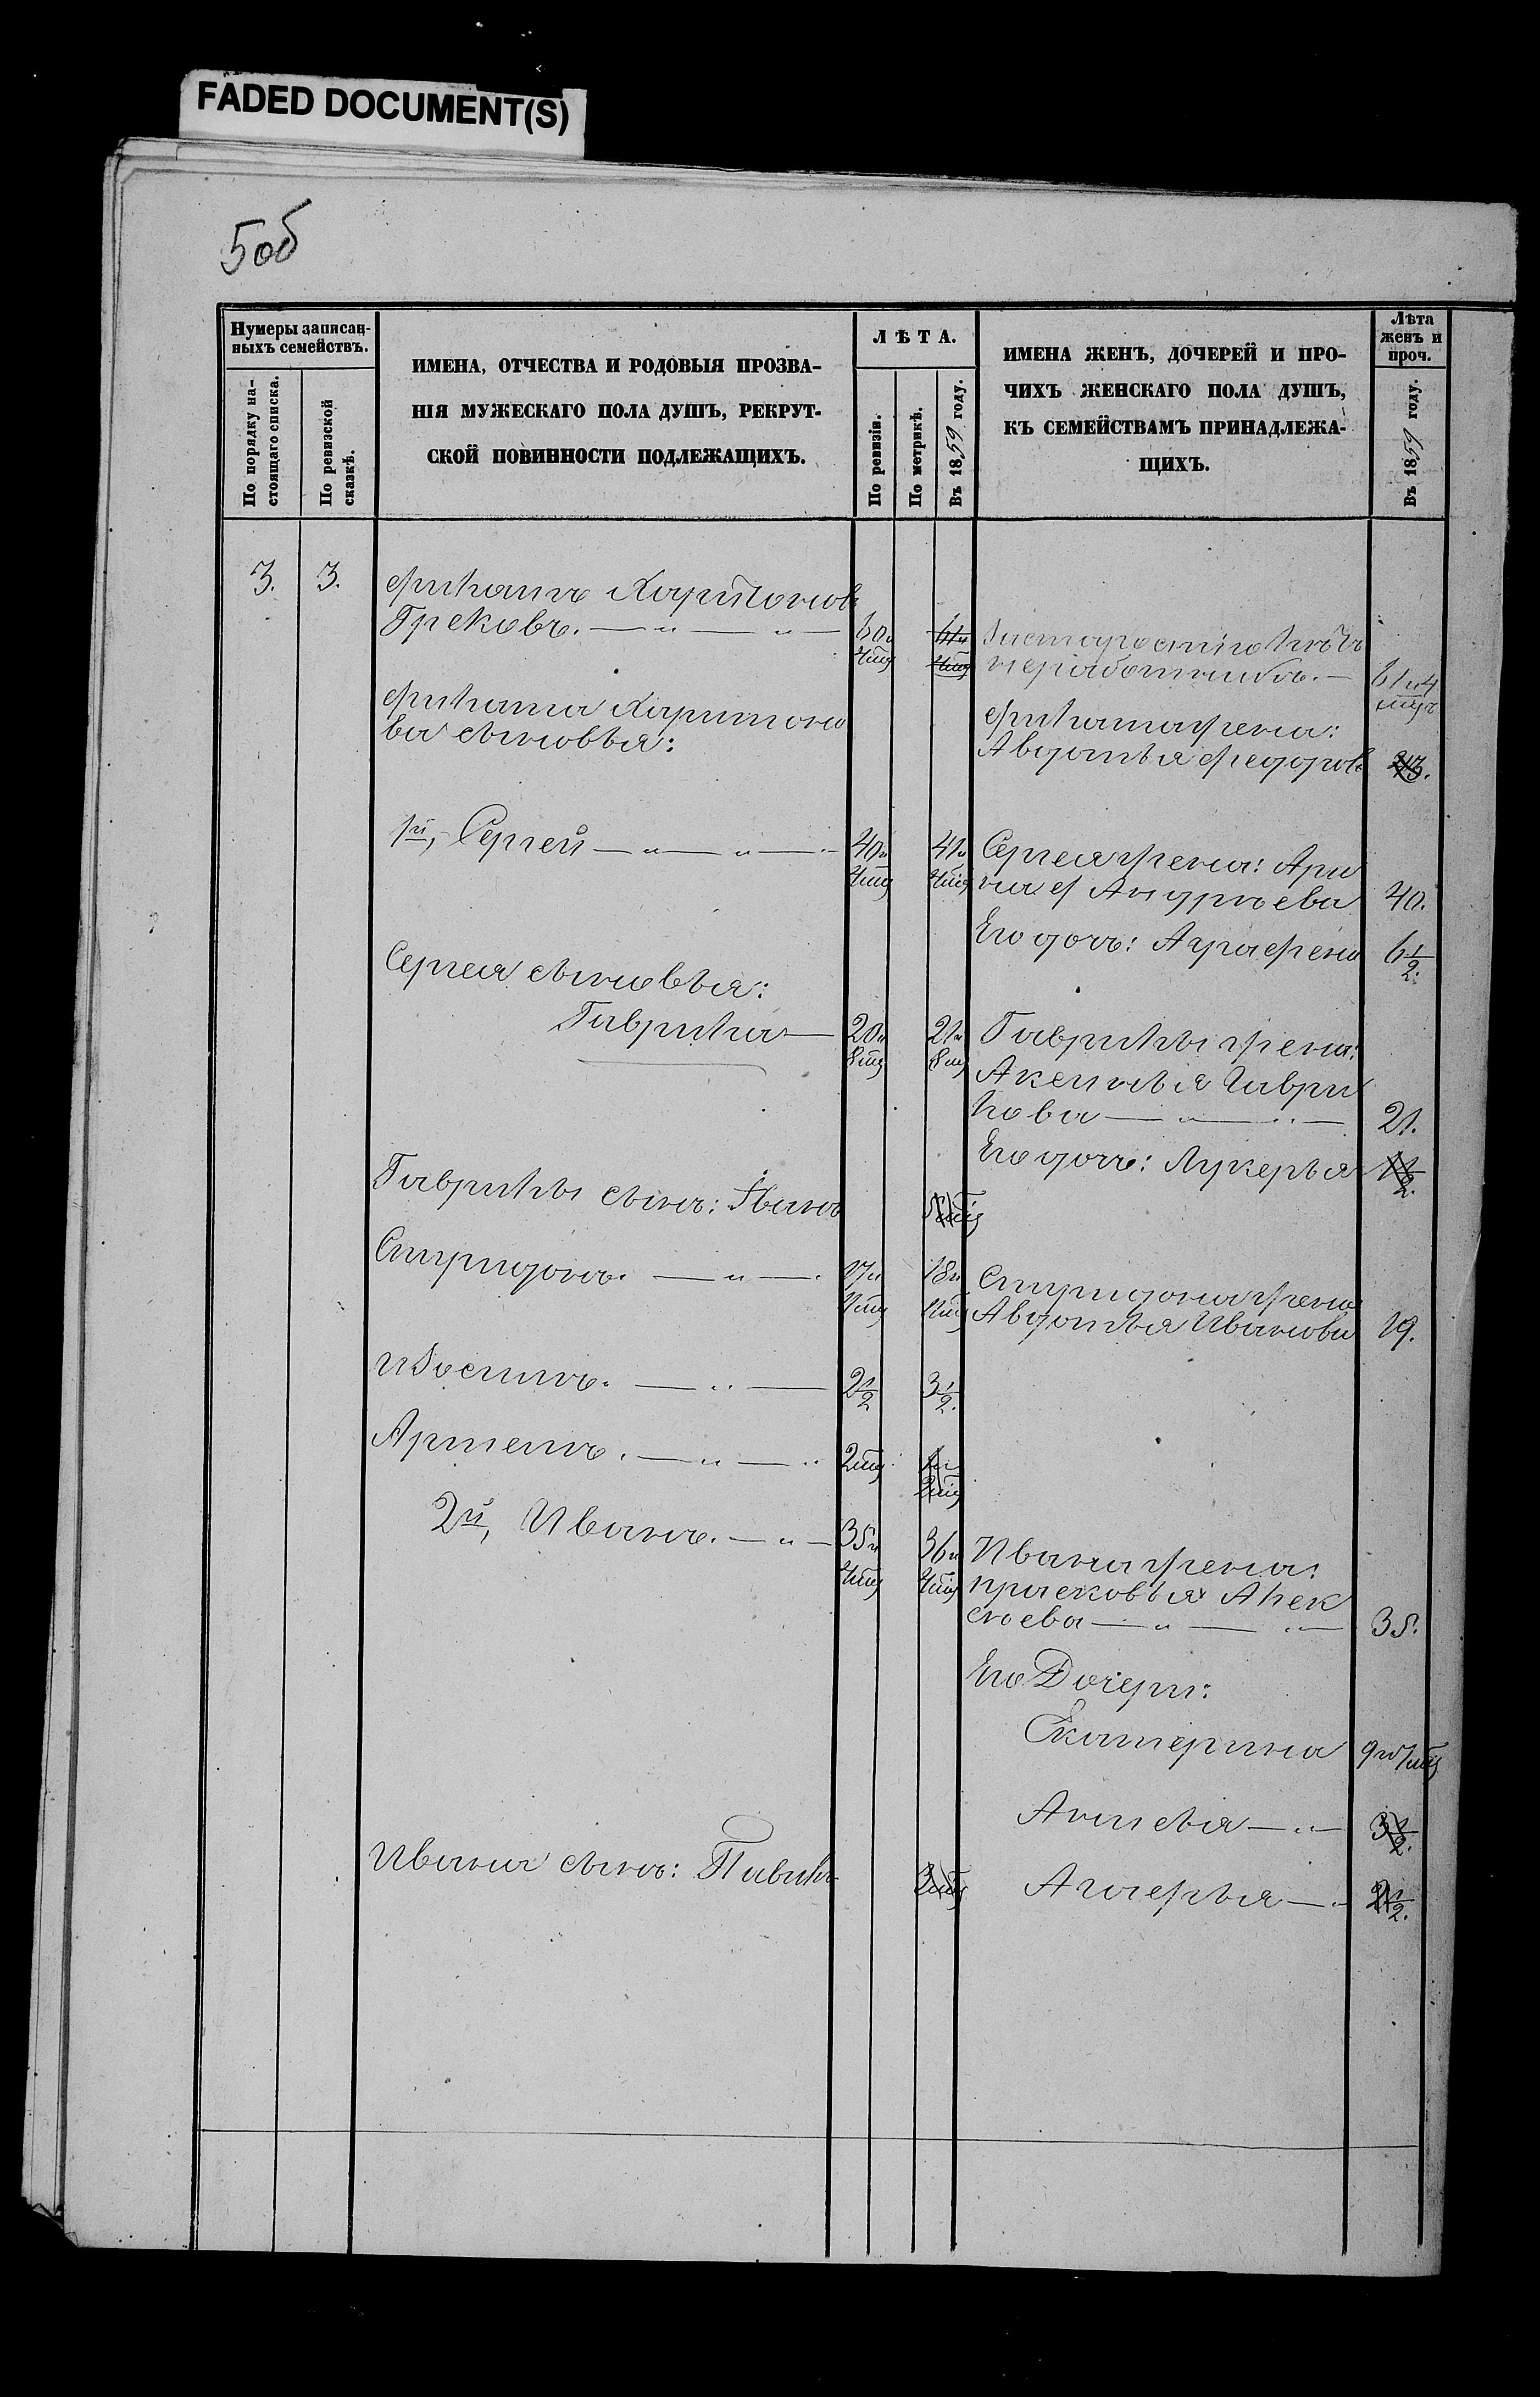 FADED DOCUMENT(S)
5об
Нумеры записан-
ныхъ семействъ.
По порядку на-
стоящаго списка.
По ревизской
сказкѣ.
ИМЕНА, ОТЧЕСТВА И РОДОВЫЯ ПРОЗВА-
НІЯ МУЖЕСКАГО ПОЛА ДУШЪ, РЕКРУТ-
СКОЙ ПОВИННОСТИ ПОДЛЕЖАЩИХЪ.
ЛѢТА.
По ревизіи.
По метрикѣ.
Въ 1859 году.
ИМЕНА ЖЕНЪ, ДОЧЕРЕЙ И ПРО-
ЧИХЪ ЖЕНСКАГО ПОЛА ДУШЪ,
КЪ СЕМЕЙСТВАМЪ ПРИНАДЛЕЖА-
ЩИХЪ.
Лѣта
женъ и
проч.
Въ 1859 году.
3. 3. Филатъ Харитоновъ
Грековъ. 60 и 61 и За старостію лѣтъ
4 мц 4 мц неработникъ. 61 и 4
Филата Харитоно
ва сыновья:
Филата жена:
Авдотья Федоров
1й, Сергей 40 и 41 и Сергея жена: Ари
4 мц 4 мц на Андрѣева 40.
Его дочь: Аграфена 6 1/2.
Сергея сыновья:
Гаврила 20 и 21 и Гаврилы жена:
8 мц 8 мц Аксинья Гаври
лова 21.
Его дочь: Лукерья 1 1/2.
Гаврилы сынъ: Иванъ
Спиридонъ. 17 и 18 и Спиридона жена
мц мц Авдотья Иванова 19.
Изосимъ. 2 1/2 3 1/2.
Артемъ. 2 мц 1 и
2 мц
2й, Иванъ. 35 и 36 и Ивана жена:
4 мц 4 мц Прасковья Алек
сѣева 35.
Его Дочери:
Екатерина 9 и мц
Анисья 3 1/2.
Ивана сынъ: Павилъ 3 мц Агафья 2 1/2.